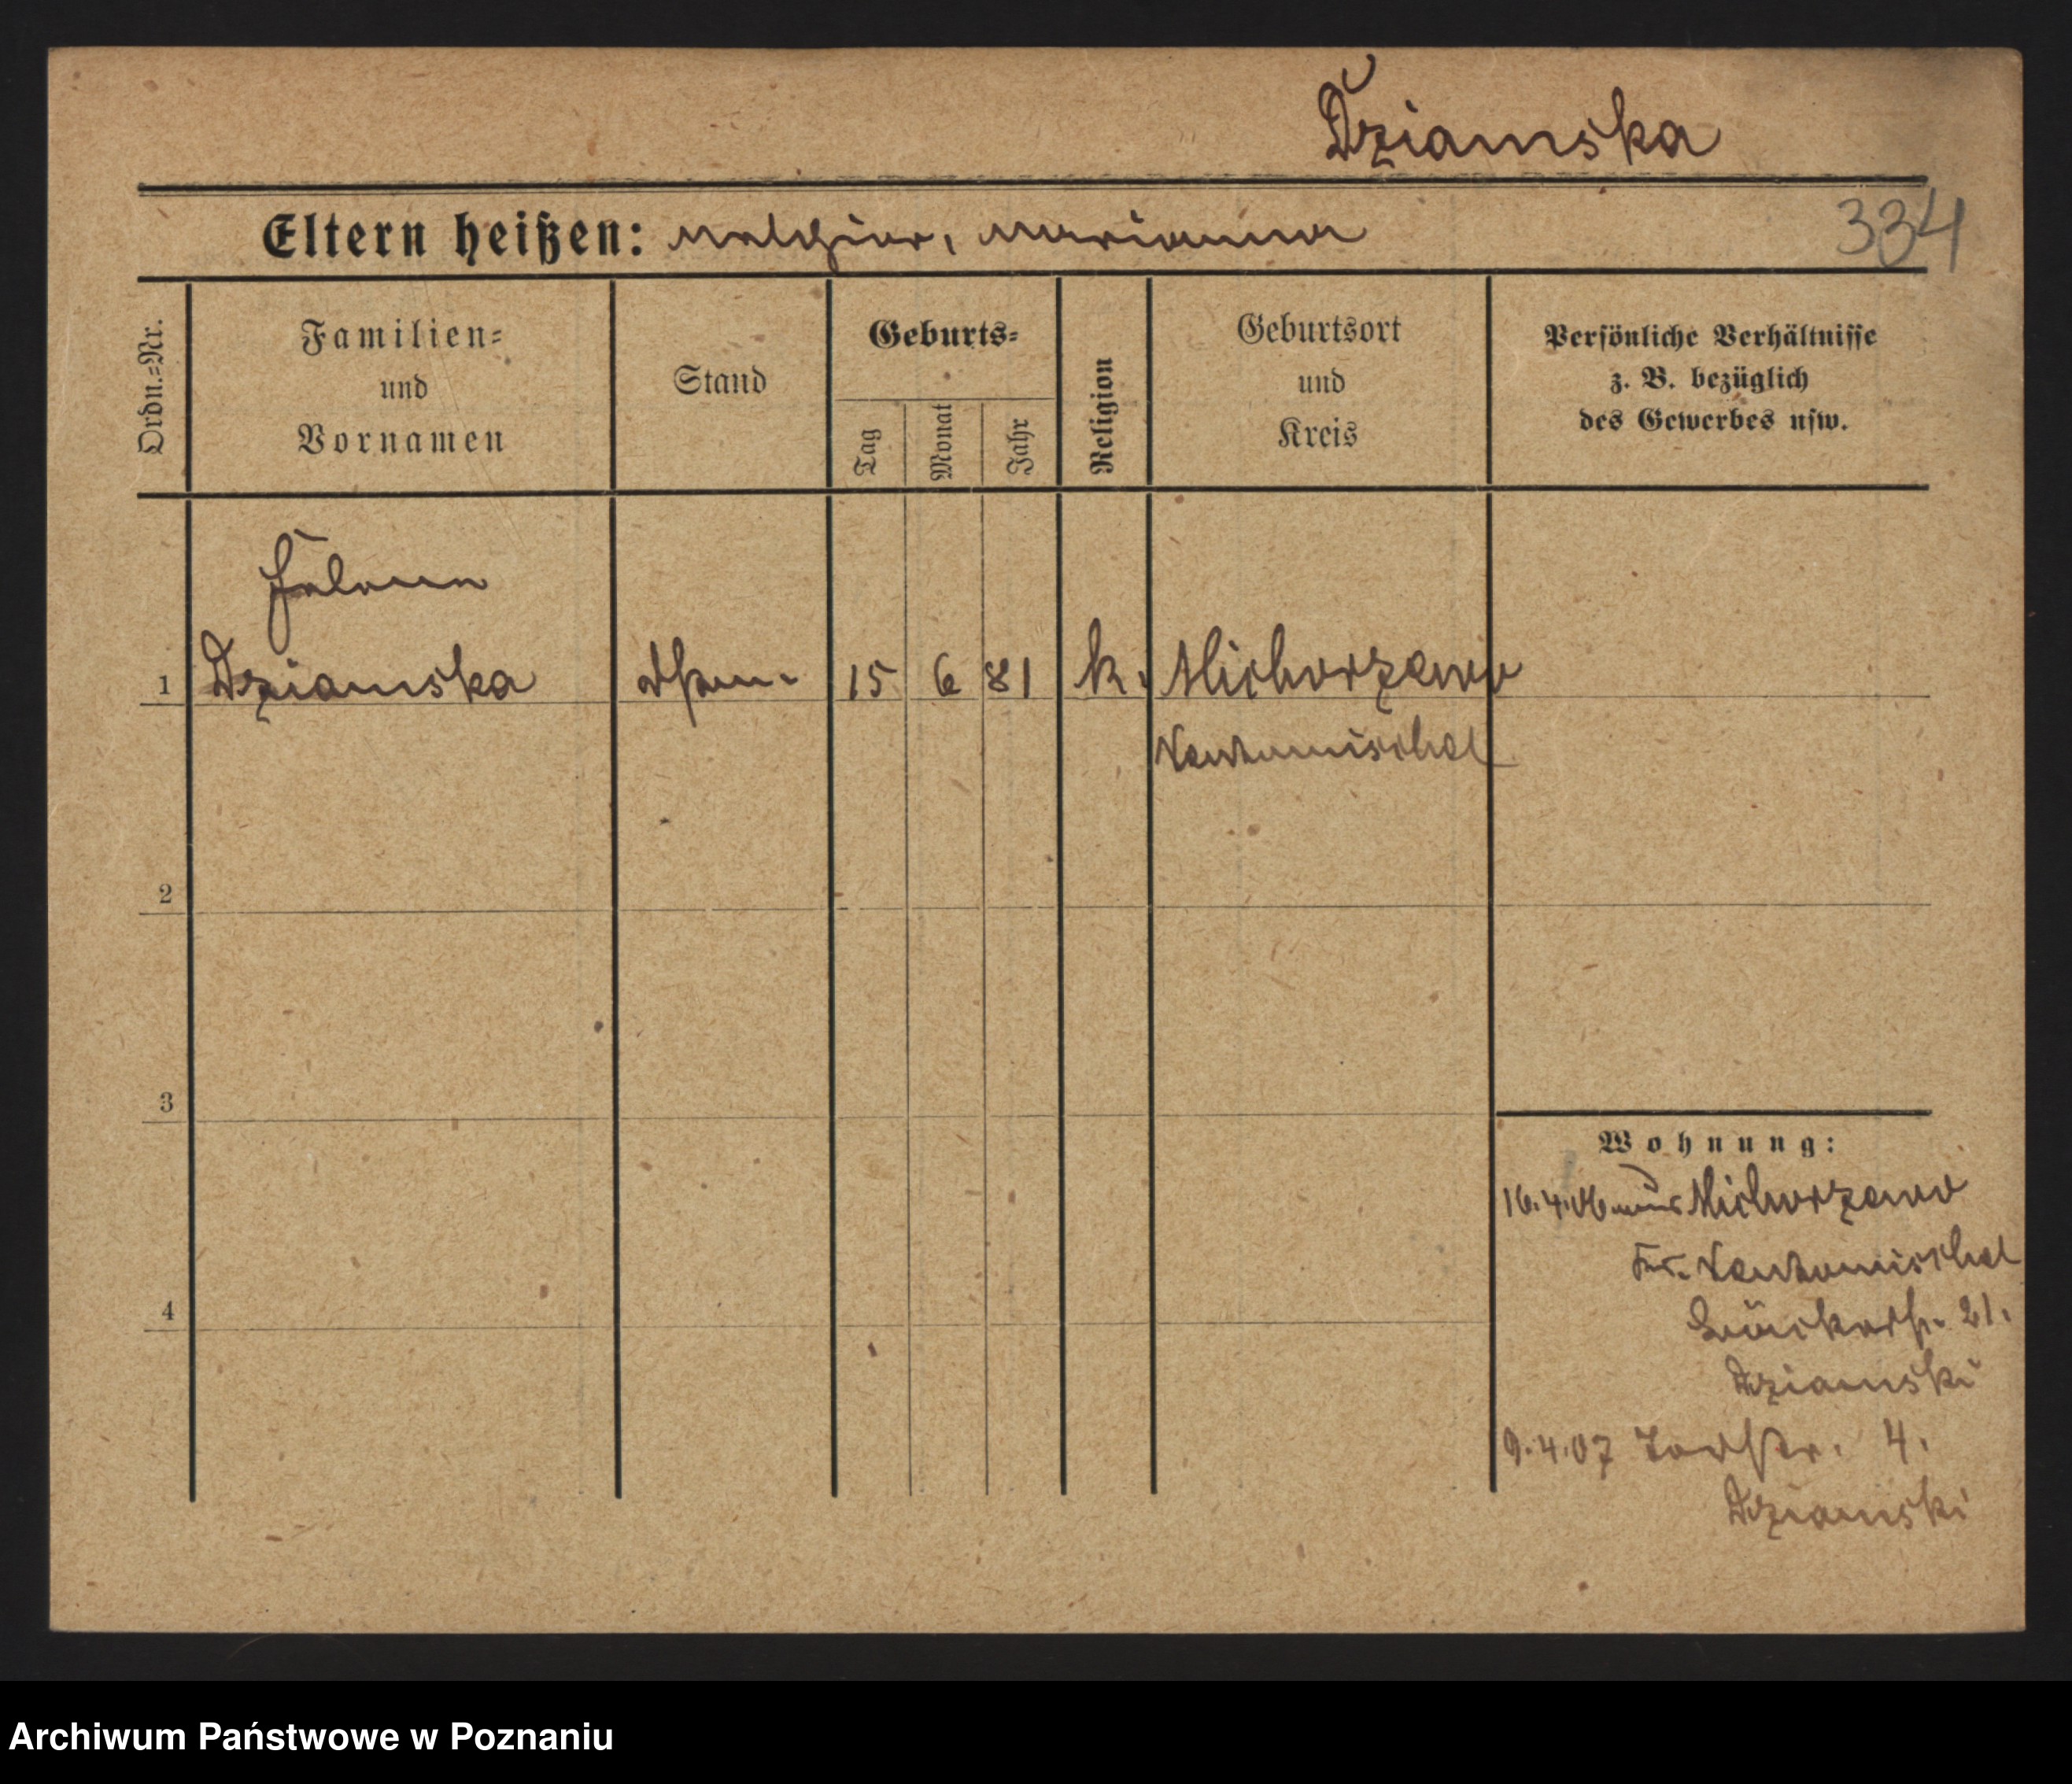 Dziamska
334
Eltern heißen: Malchior, Marianna
Ordn.=Nr.
Familien=
und
Vornamen
Stand
Geburts=
Tag
Monat
Jahr
Religion
Geburtsort
und
Kreis
Persönliche Verhältnisse
z. B. bezüglich
des Gewerbes usw.
Helena
1 Dziamska 15 6 81 k. Michorzewo
Neutomischel
2
3
4
Wohnung:
16.4.06 aus Michorzewo
Kr. Neutomischel
21.
Dziamski
9.4.07 4.
Dziamski
Archiwum Państwowe w Poznaniu